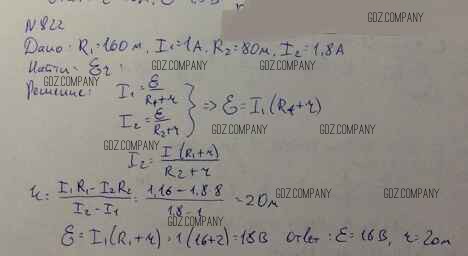 N 822
GDZ.COMPANY
Дано: R₁=16Ом, I₁=1А, R₂=8Ом, I₂=1,8А
Найти: Ɛ r
GDZ.COMPANY GDZ.COMPANY GDZ.COMPANY
Решение: I₁ = Ɛ/(R₁+r)
I₂ = Ɛ/(R₂+r) } => Ɛ=I₁(R₁+r)
GDZ.COMPANY GDZ.COMPANY GDZ.COMPANY
I₂ = I(R₁+r)/(R₂+r)
GDZ.COMPANY
r = (I₁R₁-I₂R₂)/(I₂-I₁) = (1.16-1.8.8)/(1,8-1) = 2Ом
GDZ.COMPANY GDZ.COMPANY GDZ.COMPANY
Ɛ=I₁(R₁+r)=1(16+2)=18В Ответ: Ɛ=16В, r=2Ом